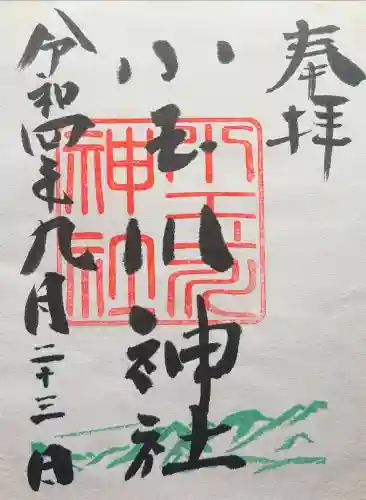 奉拝
小玉川神社
小玉川神社
令和四年九月二十三日